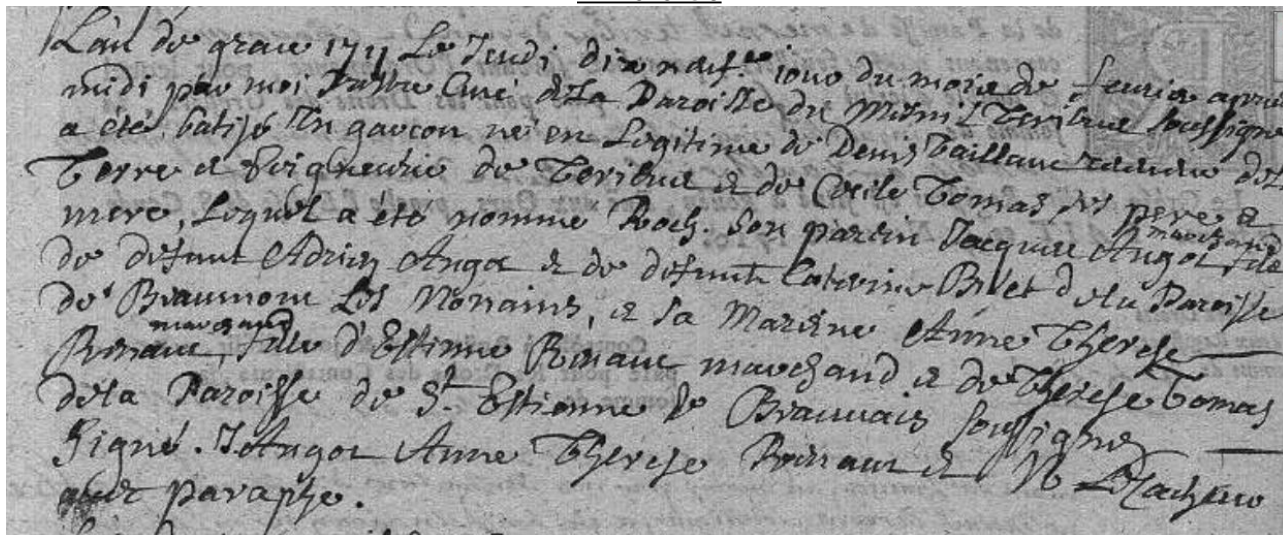 L'an de grace 1711 Le Jeudi dix neuf.e iour du mois de feurier apres
midi par moi Prestre Curé de la Paroisse du Mesnil Teribus soussigné
a été batisé un garcon né en Legitime de Denis Taillant receueur de la
Terre et seigneurie de Teribus et de Cecile Tomas, ses pere et
mere, Lequel a été nommé Roch. Son parein Jacques Angot marchand, fils
de defunt Adrien Angot et de defunte Caterine Bilet de la Paroisse
de Beaumont Les Nonains, et sa Mareine Anne Therese
Renaut, marchand fille d'Estienne Renaut marchand et de Therese Tomas
de la Paroisse de St. Estienne de Beauuais soussignés
Signé. J. Angot Anne Therese Renaut et N
auec paraphe.